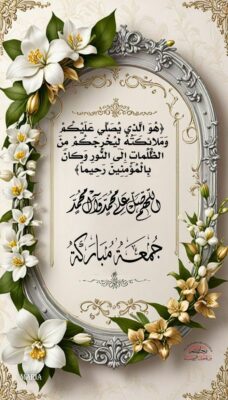 ﴿هُوَ الَّذِي يُصَلِّي عَلَيْكُمْ
وَمَلَائِكَتُهُ لِيُخْرِجَكُمْ مِنَ
الظُّلُمَاتِ إِلَى النُّورِ وَكَانَ
بِالْمُؤْمِنِينَ رَحِيماً﴾
اللهم صل على محمد وآل محمد
جمعة مباركة